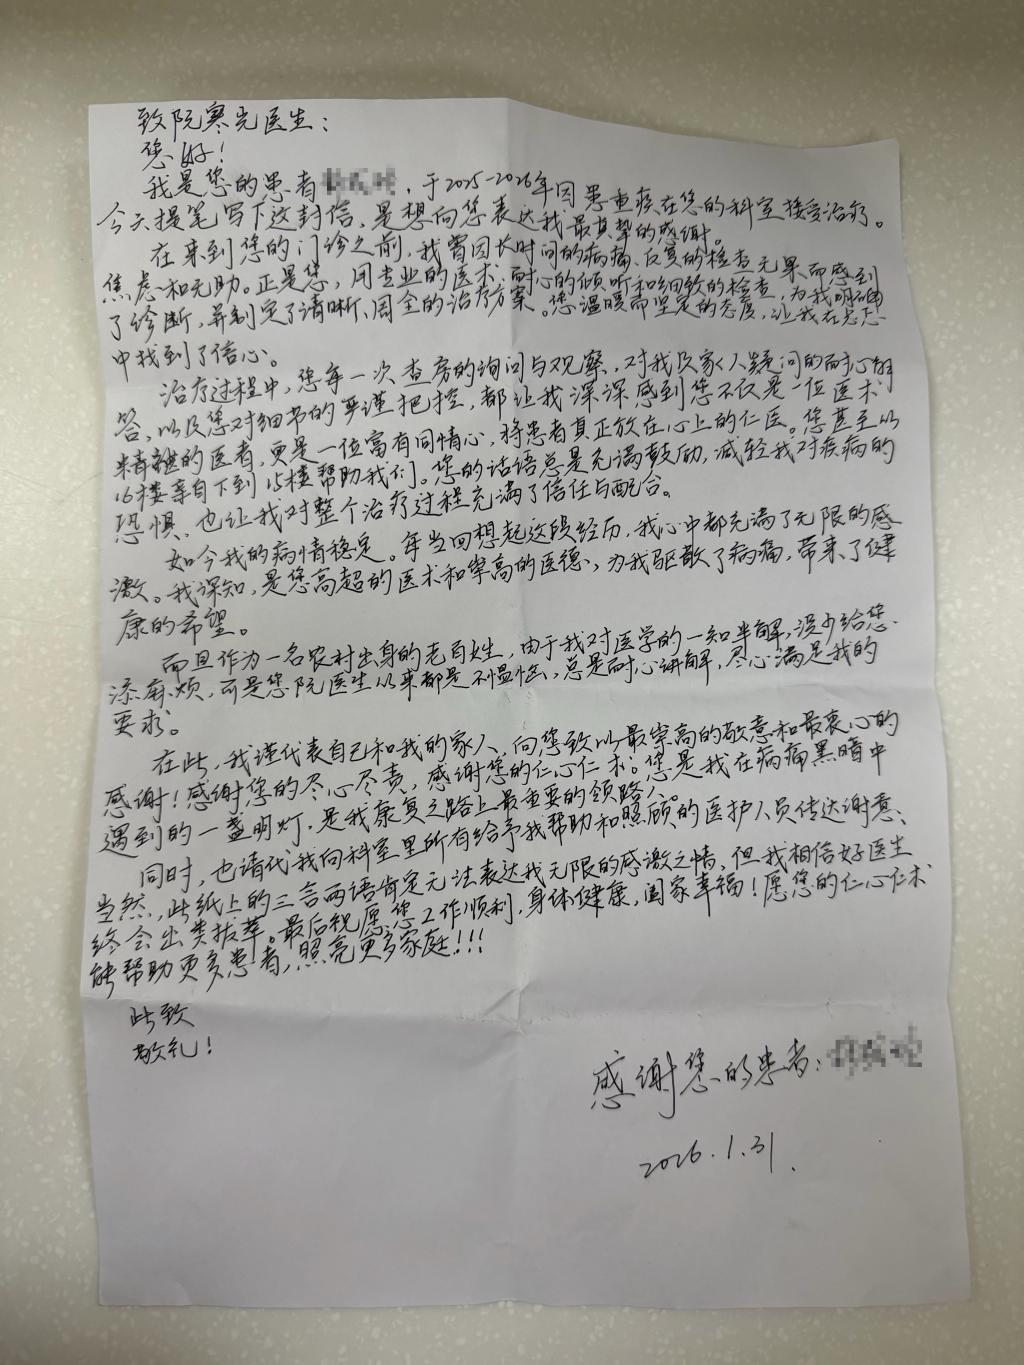 致阮寒光医生：
您好！
我是您的患者，于2025-2026年因患重疾在您的科室接受治疗。
今天提笔写下这封信，是想向您表达我最真挚的感谢。
在来到您的门诊之前，我曾因长时间的病痛、反复的检查无果而感到
焦虑和无助。正是您，用专业的医术、耐心的倾听和细致的检查，为我明确
了诊断，并制定了清晰、周全的治疗方案。您温暖而坚定的态度，让我在
中找到了信心。
治疗过程中，您每一次查房的询问与观察，对我及家人疑问的耐心解
答，以及您对细节的严谨把控，都让我深深感到您不仅是一位医术
精湛的医者，更是一位富有同情心，将患者真正放在心上的仁医。您甚至从
16楼亲自下到15楼帮助我们。您的话语总是充满鼓励，减轻我对疾病的
恐惧，也让我对整个治疗过程充满了信任与配合。
如今我的病情稳定。每当回想起这段经历，我心中都充满了无限的感
激。我深知，是您高超的医术和崇高的医德，为我驱散了病痛，带来了健
康的希望。
而且作为一名农村出身的老百姓，由于我对医学的一知半解，没少给您
添麻烦，可是您阮医生从来都是不愠恼，总是耐心讲解，尽心满足我的
要求。
在此，我谨代表自己和我的家人，向您致以最崇高的敬意和最衷心的
感谢！感谢您的尽心尽责，感谢您的仁心仁术。您是我在病痛黑暗中
遇到的一盏明灯，是我康复之路上最重要的领路人。
同时，也请代我向科室里所有给予我帮助和照顾的医护人员传达谢意、
当然，此纸上的三言两语肯定无法表达我无限的感激之情，但我相信好医生
终会出类拔萃。最后祝愿您工作顺利，身体健康，阖家幸福！愿您的仁心仁术
能帮助更多患者，照亮更多家庭！！！
此致
敬礼！
感谢您的患者：
2026.1.31.